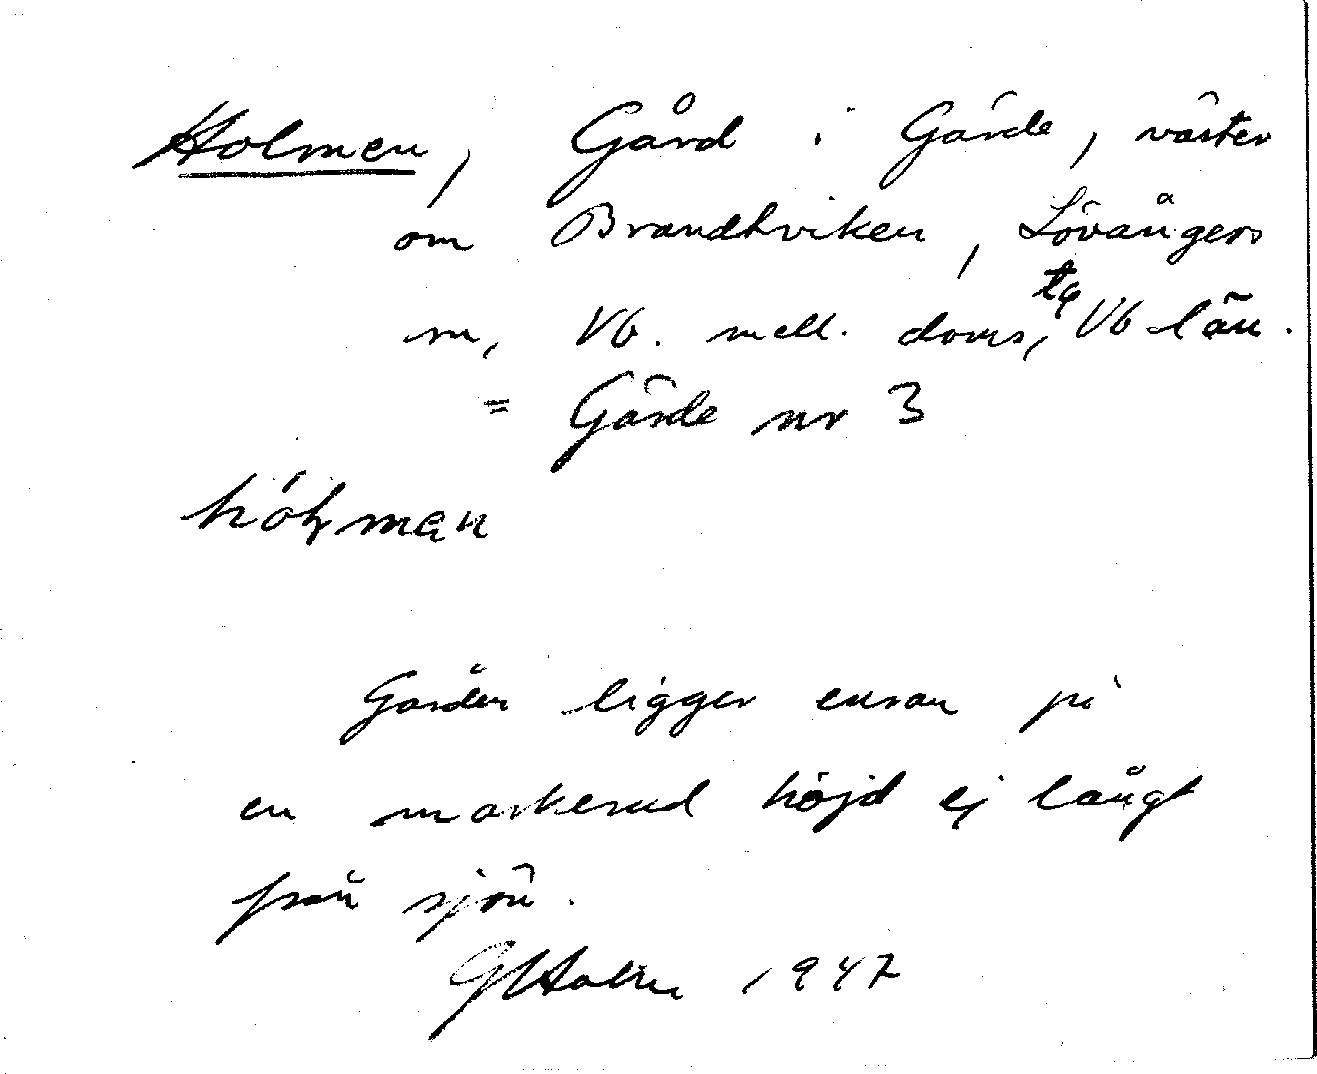 Holmen, Gård i Gärde, väster
om Brandtviken, Lövångers
sn, Vb. mell. doms, tg Vb län.
= Gärde nr 3
hóļman
Gården ligger ensam på
en markerad höjd ej långt
från sjön.
G Holm 1947